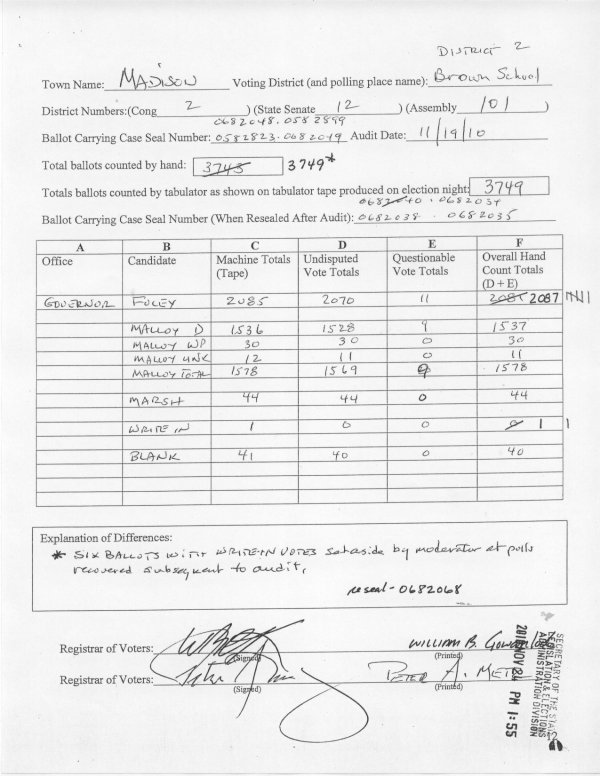 DISTRICT 2
Town Name: MADISON Voting District (and polling place name): Brown School
District Numbers:(Cong 2 ) (State Senate 12 ) (Assembly 101 )
0682048.0582899
Ballot Carrying Case Seal Number: 0582823.0682049 Audit Date: 11/19/10
Total ballots counted by hand: 3743 3749*
Totals ballots counted by tabulator as shown on tabulator tape produced on election night: 3749
40 . 0682034
Ballot Carrying Case Seal Number (When Resealed After Audit): 0682038 . 0682035
A B C D E F
Office Candidate Machine Totals (Tape) Undisputed Vote Totals Questionable Vote Totals Overall Hand Count Totals (D + E)
GOVERNOR FOLEY 2085 2070 11 2081 2087
MALLOY D 1536 1528 9 1537
MALLOY WP 30 30 0 30
MALLOY UNK 12 11 0 11
MALLOY TOTAL 1578 1569 9 1578
MARSH 44 44 0 44
WRITE IN 1 0 0 0 1 1
BLANK 41 40 0 40
Explanation of Differences:
* SIX BALLOTS WITH WRITE-IN VOTES set aside by moderator at polls
recovered subsequent to audit,
reseal - 0682068
Registrar of Voters: WILLIAM B.
(Signed) (Printed)
Registrar of Voters: PETER A.
(Signed) (Printed)
SECRETARY OF THE STATE
LEGISLATION & ELECTIONS
ADMINISTRATION DIVISION
2010 NOV 24 PM 1:55